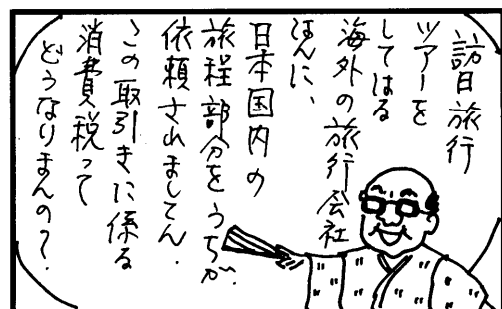 訪日旅行
ツアーを
してはる
海外の旅行会社
はんに、
日本国内の
旅程部分をうちが
依頼されましてん.
この取引きに係る
消費税って
どうなりまんの？